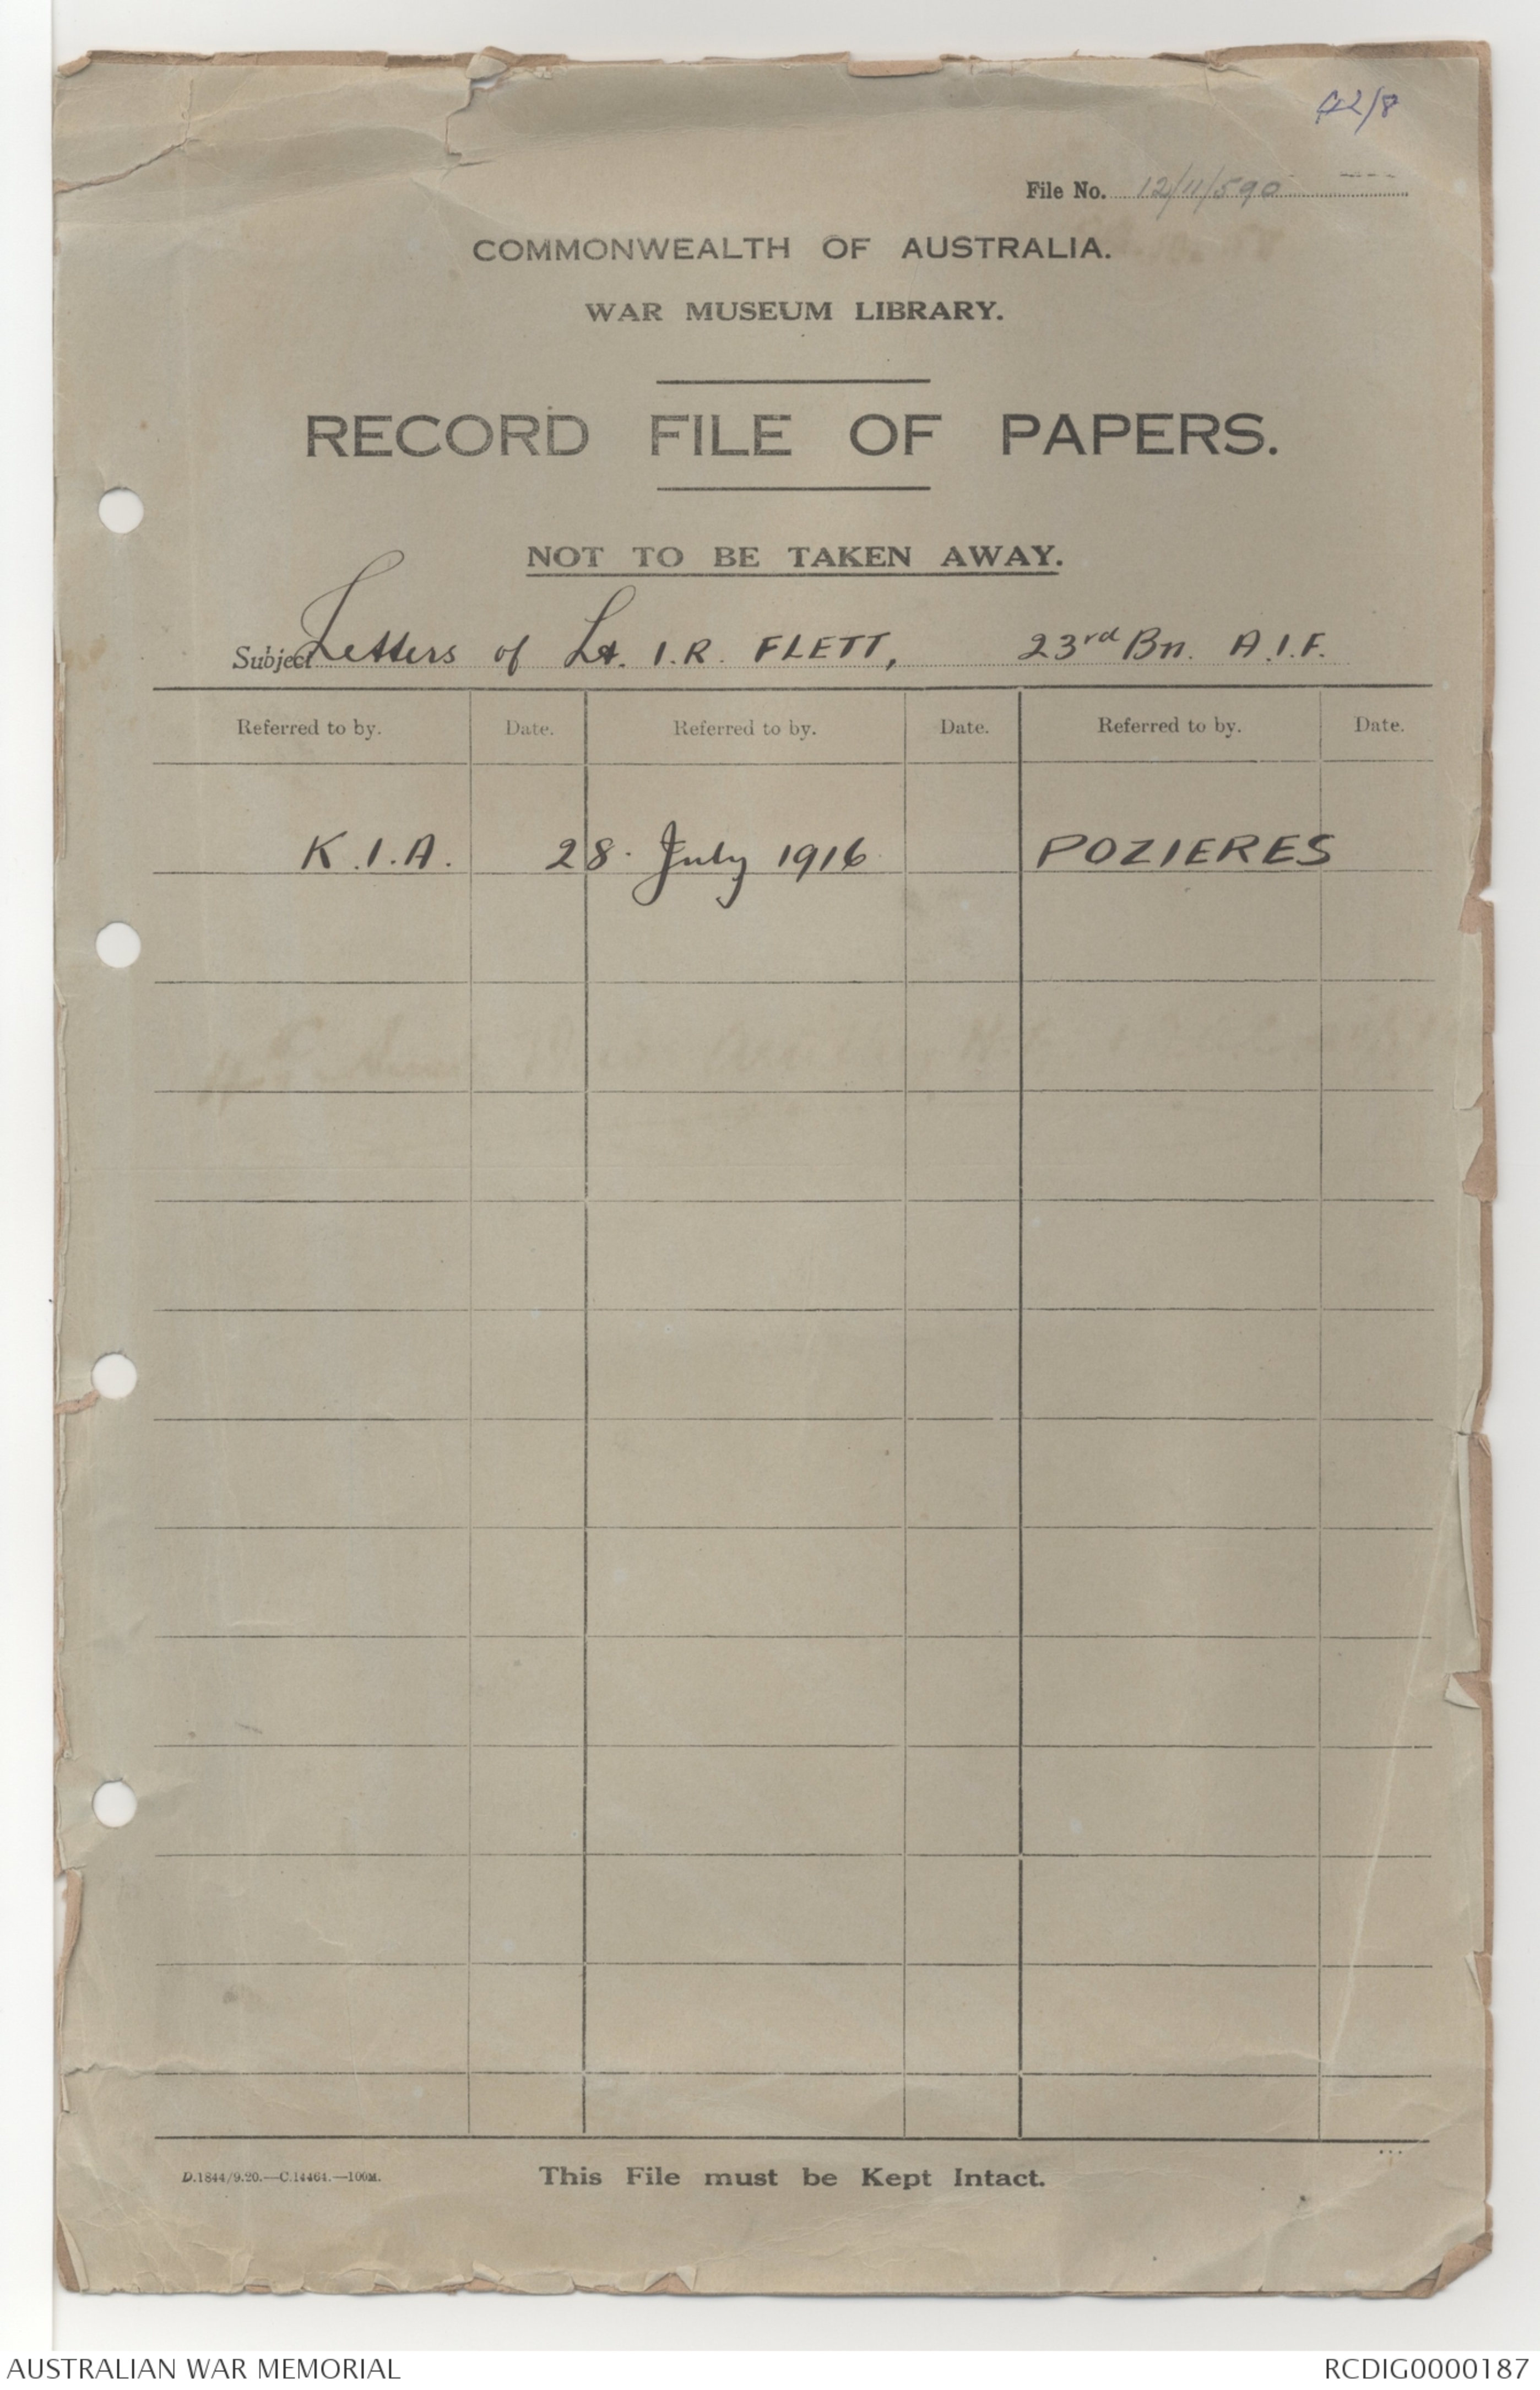 42/8
File No. 12/11/590
COMMONWEALTH OF AUSTRALIA.
WAR MUSEUM LIBRARY.
RECORD FILE OF PAPERS.
NOT TO BE TAKEN AWAY.
Subject Letters of Lt. I.R. FLETT, 23rd Bn. A.I.F.
Referred to by. Date. Referred to by. Date. Referred to by. Date.
K.I.A. 28. July 1916 POZIERES
D.1844/9.20.—C.14464.—100M. This File must be Kept Intact.
AUSTRALIAN WAR MEMORIAL RCDIG0000187